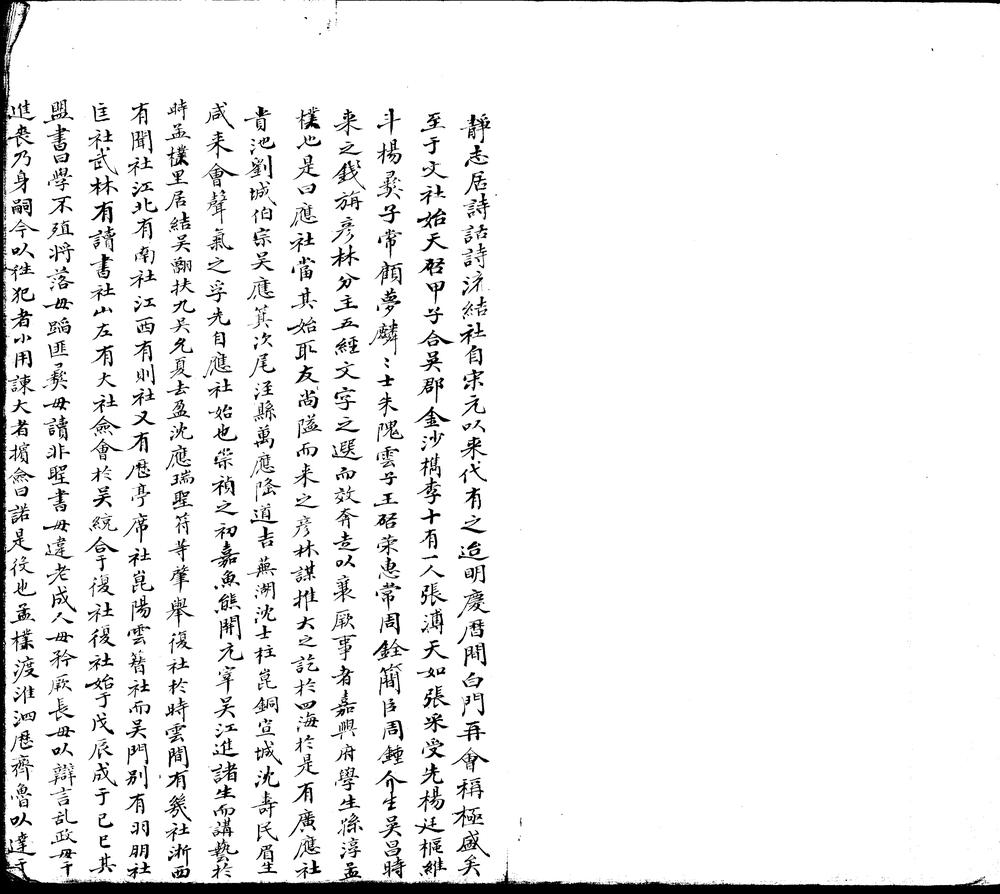 靜志居詩話詩流結社自宋元以來代有之迨明慶曆間白門再會稱極盛矣
至于文社始天啓甲子合吳郡金沙檇李十有一人張溥天如張采受先楊廷樞維
斗楊彝子常顧夢麟〻士朱隗雲子王啓荣惠常周銓簡臣周鍾介生吳昌時
來之錢旃彥林分主五經文字之選而效奔走以襄厥事者嘉興府學生孫淳孟
樸也是曰應社當其始取友尚隘而来之彥林謀推大之訖於四海於是有廣應社
貴池劉城伯宗吳應箕次尾涇縣萬應隆道吉蕪湖沈士柱崑銅宣城沈壽民眉生
咸来會聲氣之孚先自應社始也崇禎之初嘉魚熊開元宰吳江進諸生而講藝於
時孟樸里居結吳䎖扶九吳允夏去盈沈應瑞聖符等肇舉復社於時雲間有幾社浙西
有聞社江北有南社江西有則社又有歷亭席社崑陽雲簪社而吳門别有羽朋社
匡社武林有讀書社山左有大社僉會於吳統合于復社復社始于戊辰成于己巳其
盟書曰學不殖將落毋蹈匪彝毋讀非聖書毋違老成人毋矜厥長毋以辯言乱政毋干
進喪乃身嗣今以往犯者小用諫大者擯僉曰諾是役也孟樸渡淮泗歷齊魯以達于